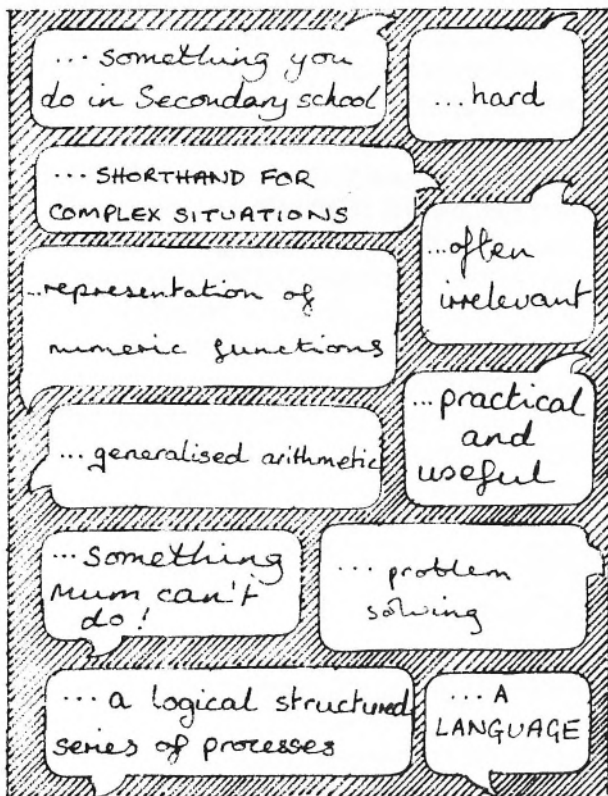 ... something you
do in Secondary school
...hard
... SHORTHAND FOR
COMPLEX SITUATIONS
...often
irrelevant
...representation of
numeric functions
...practical
and
useful
... generalised arithmetic
... something
Mum can't
do!
... problem
solving
... a logical structured
series of processes
... A
LANGUAGE